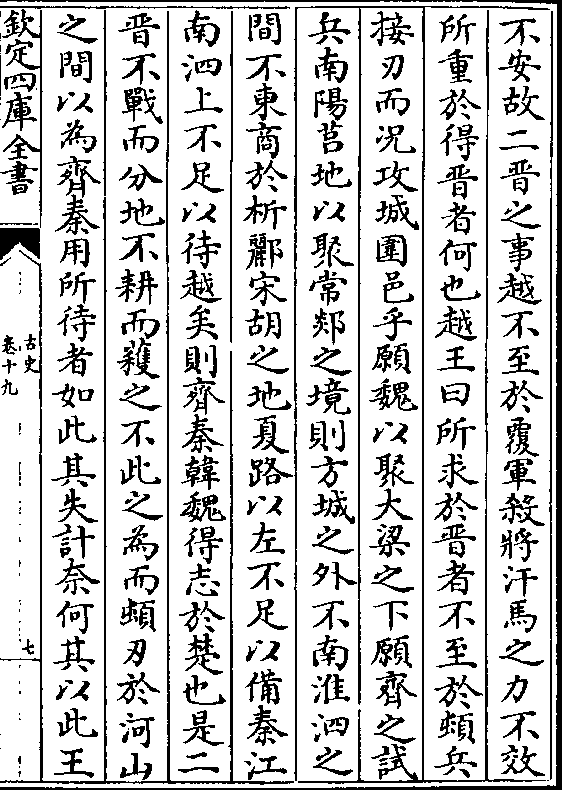 不安故二晋之事越不至於覆軍殺將汗馬之力不效
所重於得晋者何也越王曰所求於晋者不至於頓兵
接刃而况攻城圍邑乎願魏以聚大梁之下願齊之試
兵南陽莒地以聚常郯之境則方城之外不南淮泗之
間不東商於析酈宋胡之地夏路以左不足以備秦江
南泗上不足以待越矣則齊秦韓魏得志於楚也是二
晋不戰而分地不耕而穫之不此之為而頓刃於河山
之間以為齊秦用所待者如此其失計奈何其以此王
欽定四庫全書
古史
卷十九
七